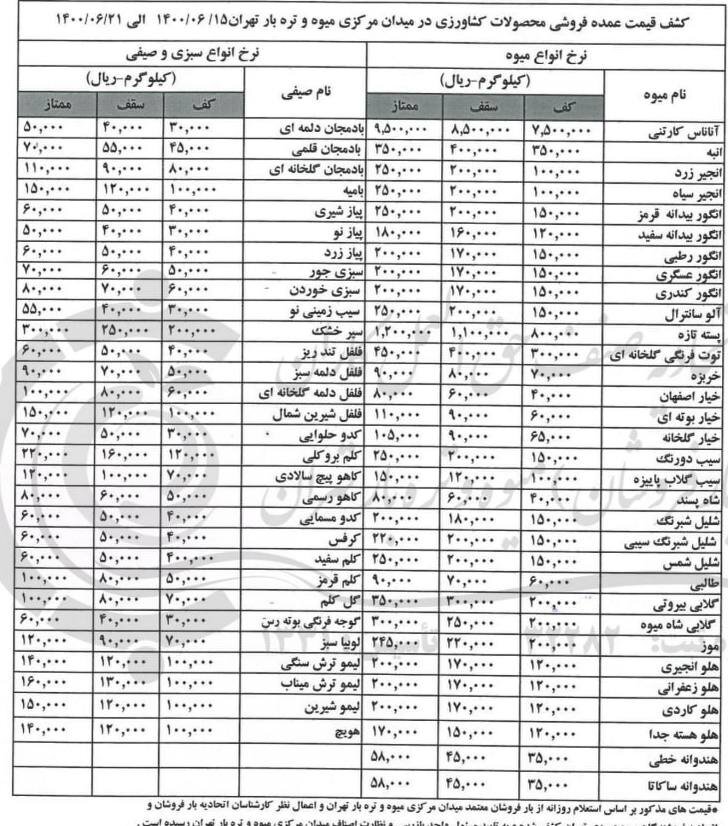 کشف قیمت عمده فروشی محصولات کشاورزی در میدان مرکزی میوه و تره بار تهران ۱۴۰۰/۰۶/۱۵ الی ۱۴۰۰/۰۶/۲۱
نرخ انواع میوه نرخ انواع سبزی و صیفی
نام میوه (کیلوگرم-ریال) نام صیفی (کیلوگرم-ریال)
کف سقف ممتاز کف سقف ممتاز
آناناس کارتنی ۷,۵۰۰,۰۰۰ ۸,۵۰۰,۰۰۰ ۹,۵۰۰,۰۰۰ بادمجان دلمه ای ۳۰,۰۰۰ ۴۰,۰۰۰ ۵۰,۰۰۰
انبه ۳۵۰,۰۰۰ ۴۰۰,۰۰۰ ۳۵۰,۰۰۰ بادمجان قلمی ۴۵,۰۰۰ ۵۵,۰۰۰ ۷۰,۰۰۰
انجیر زرد ۱۰۰,۰۰۰ ۲۰۰,۰۰۰ ۲۵۰,۰۰۰ بادمجان گلخانه ای ۸۰,۰۰۰ ۹۰,۰۰۰ ۱۱۰,۰۰۰
انجیر سیاه ۱۰۰,۰۰۰ ۲۰۰,۰۰۰ ۲۵۰,۰۰۰ بامیه ۱۰۰,۰۰۰ ۱۲۰,۰۰۰ ۱۵۰,۰۰۰
انگور بیدانه قرمز ۱۵۰,۰۰۰ ۲۰۰,۰۰۰ ۲۵۰,۰۰۰ پیاز شیری ۴۰,۰۰۰ ۵۰,۰۰۰ ۶۰,۰۰۰
انگور بیدانه سفید ۱۲۰,۰۰۰ ۱۶۰,۰۰۰ ۱۸۰,۰۰۰ پیاز نو ۳۰,۰۰۰ ۴۰,۰۰۰ ۵۰,۰۰۰
انگور رطبی ۱۵۰,۰۰۰ ۱۷۰,۰۰۰ ۲۰۰,۰۰۰ پیاز زرد ۴۰,۰۰۰ ۵۰,۰۰۰ ۶۰,۰۰۰
انگور عسگری ۱۵۰,۰۰۰ ۱۷۰,۰۰۰ ۲۰۰,۰۰۰ سبزی جور ۵۰,۰۰۰ ۶۰,۰۰۰ ۷۰,۰۰۰
انگور کندری ۱۵۰,۰۰۰ ۱۷۰,۰۰۰ ۲۰۰,۰۰۰ سبزی خوردن ۶۰,۰۰۰ ۷۰,۰۰۰ ۸۰,۰۰۰
آلو سانترال ۱۵۰,۰۰۰ ۲۰۰,۰۰۰ ۲۵۰,۰۰۰ سیب زمینی نو ۳۰,۰۰۰ ۴۰,۰۰۰ ۵۵,۰۰۰
پسته تازه ۸۰۰,۰۰۰ ۱,۱۰۰,۰۰۰ ۱,۲۰۰,۰۰۰ سیر خشک ۲۰۰,۰۰۰ ۲۵۰,۰۰۰ ۳۰۰,۰۰۰
توت فرنگی گلخانه ای ۳۰۰,۰۰۰ ۴۰۰,۰۰۰ ۴۵۰,۰۰۰ فلفل تند ریز ۴۰,۰۰۰ ۵۰,۰۰۰ ۶۰,۰۰۰
خربزه ۷۰,۰۰۰ ۸۰,۰۰۰ ۹۰,۰۰۰ فلفل دلمه سبز ۵۰,۰۰۰ ۷۰,۰۰۰ ۹۰,۰۰۰
خیار اصفهان ۴۰,۰۰۰ ۶۰,۰۰۰ ۸۰,۰۰۰ فلفل دلمه گلخانه ای ۶۰,۰۰۰ ۸۰,۰۰۰ ۱۰۰,۰۰۰
خیار بوته ای ۶۰,۰۰۰ ۹۰,۰۰۰ ۱۱۰,۰۰۰ فلفل شیرین شمال ۱۰۰,۰۰۰ ۱۲۰,۰۰۰ ۱۵۰,۰۰۰
خیار گلخانه ۶۵,۰۰۰ ۹۰,۰۰۰ ۱۰۵,۰۰۰ کدو حلوایی ۳۰,۰۰۰ ۵۰,۰۰۰ ۷۰,۰۰۰
سیب دورنگ ۱۵۰,۰۰۰ ۲۰۰,۰۰۰ ۲۵۰,۰۰۰ کلم بروکلی ۱۲۰,۰۰۰ ۱۶۰,۰۰۰ ۲۲۰,۰۰۰
سیب گلاب پاییزه ۱۰۰,۰۰۰ ۱۲۰,۰۰۰ ۱۵۰,۰۰۰ کاهو پیچ سالادی ۷۰,۰۰۰ ۱۰۰,۰۰۰ ۱۲۰,۰۰۰
شاه پسند ۴۰,۰۰۰ ۶۰,۰۰۰ ۸۰,۰۰۰ کاهو رسمی ۵۰,۰۰۰ ۶۰,۰۰۰ ۸۰,۰۰۰
شلیل شبرنگ ۱۵۰,۰۰۰ ۱۸۰,۰۰۰ ۲۰۰,۰۰۰ کدو مسمایی ۴۰,۰۰۰ ۵۰,۰۰۰ ۶۰,۰۰۰
شلیل شبرنگ سیبی ۱۵۰,۰۰۰ ۲۰۰,۰۰۰ ۲۲۰,۰۰۰ کرفس ۴۰,۰۰۰ ۵۰,۰۰۰ ۶۰,۰۰۰
شلیل شمس ۱۵۰,۰۰۰ ۲۰۰,۰۰۰ ۲۵۰,۰۰۰ کلم سفید ۴۰۰,۰۰۰ ۵۰,۰۰۰ ۶۰,۰۰۰
طالبی ۶۰,۰۰۰ ۷۰,۰۰۰ ۹۰,۰۰۰ کلم قرمز ۵۰,۰۰۰ ۸۰,۰۰۰ ۱۰۰,۰۰۰
گلابی بیروتی ۲۰۰,۰۰۰ ۳۰۰,۰۰۰ ۳۵۰,۰۰۰ گل کلم ۷۰,۰۰۰ ۸۰,۰۰۰ ۱۰۰,۰۰۰
گلابی شاه میوه ۲۰۰,۰۰۰ ۲۵۰,۰۰۰ ۳۰۰,۰۰۰ گوجه فرنگی بوته رس ۳۰,۰۰۰ ۴۰,۰۰۰ ۶۰,۰۰۰
موز ۲۰۰,۰۰۰ ۲۲۰,۰۰۰ ۲۴۵,۰۰۰ لوبیا سبز ۷۰,۰۰۰ ۹۰,۰۰۰ ۱۲۰,۰۰۰
هلو انجیری ۱۲۰,۰۰۰ ۱۷۰,۰۰۰ ۲۰۰,۰۰۰ لیمو ترش سنگی ۱۰۰,۰۰۰ ۱۲۰,۰۰۰ ۱۴۰,۰۰۰
هلو زعفرانی ۱۲۰,۰۰۰ ۱۷۰,۰۰۰ ۲۰۰,۰۰۰ لیمو ترش میناب ۱۰۰,۰۰۰ ۱۳۰,۰۰۰ ۱۶۰,۰۰۰
هلو کاردی ۱۲۰,۰۰۰ ۱۷۰,۰۰۰ ۲۰۰,۰۰۰ لیمو شیرین ۱۰۰,۰۰۰ ۱۲۰,۰۰۰ ۱۵۰,۰۰۰
هلو هسته جدا ۱۲۰,۰۰۰ ۱۵۰,۰۰۰ ۱۷۰,۰۰۰ هویج ۱۰۰,۰۰۰ ۱۲۰,۰۰۰ ۱۴۰,۰۰۰
هندوانه خطی ۳۵,۰۰۰ ۴۵,۰۰۰ ۵۸,۰۰۰
هندوانه ساکاتا ۳۵,۰۰۰ ۴۵,۰۰۰ ۵۸,۰۰۰
*قیمت های مذکور بر اساس استعلام روزانه از بار فروشان معتمد میدان مرکزی میوه و تره بار تهران و اعمال نظر کارشناسان اتحادیه بار فروشان و
بازرسی و نظارت اصناف میدان مرکزی میوه و تره بار تهران رسیده است .